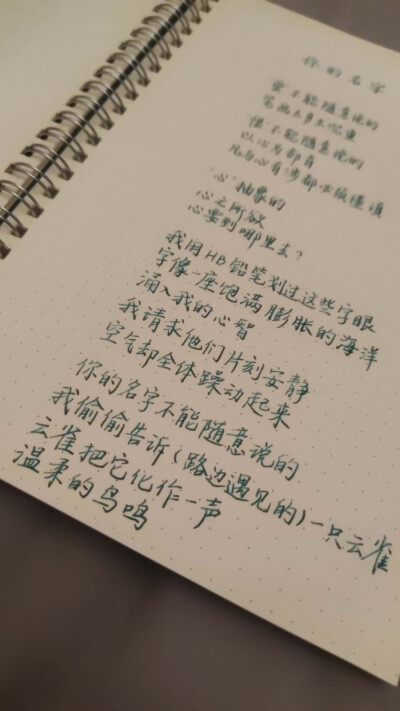 你的名字
“爱”不能随意说的
笔画太多太沉重
“恨”不能随意说的
以心为部首
凡与心有涉都必须谨慎
“心”抽象的
心之所欲
心要到哪里去？
我用HB铅笔划过这些字眼
字像一座饱满膨胀的海洋
涌入我的心智
我请求他们片刻安静
空气却全体躁动起来
你的名字不能随意说的
我偷偷告诉（路边遇见的）一只云雀
云雀把它化作一声
温柔的鸟鸣